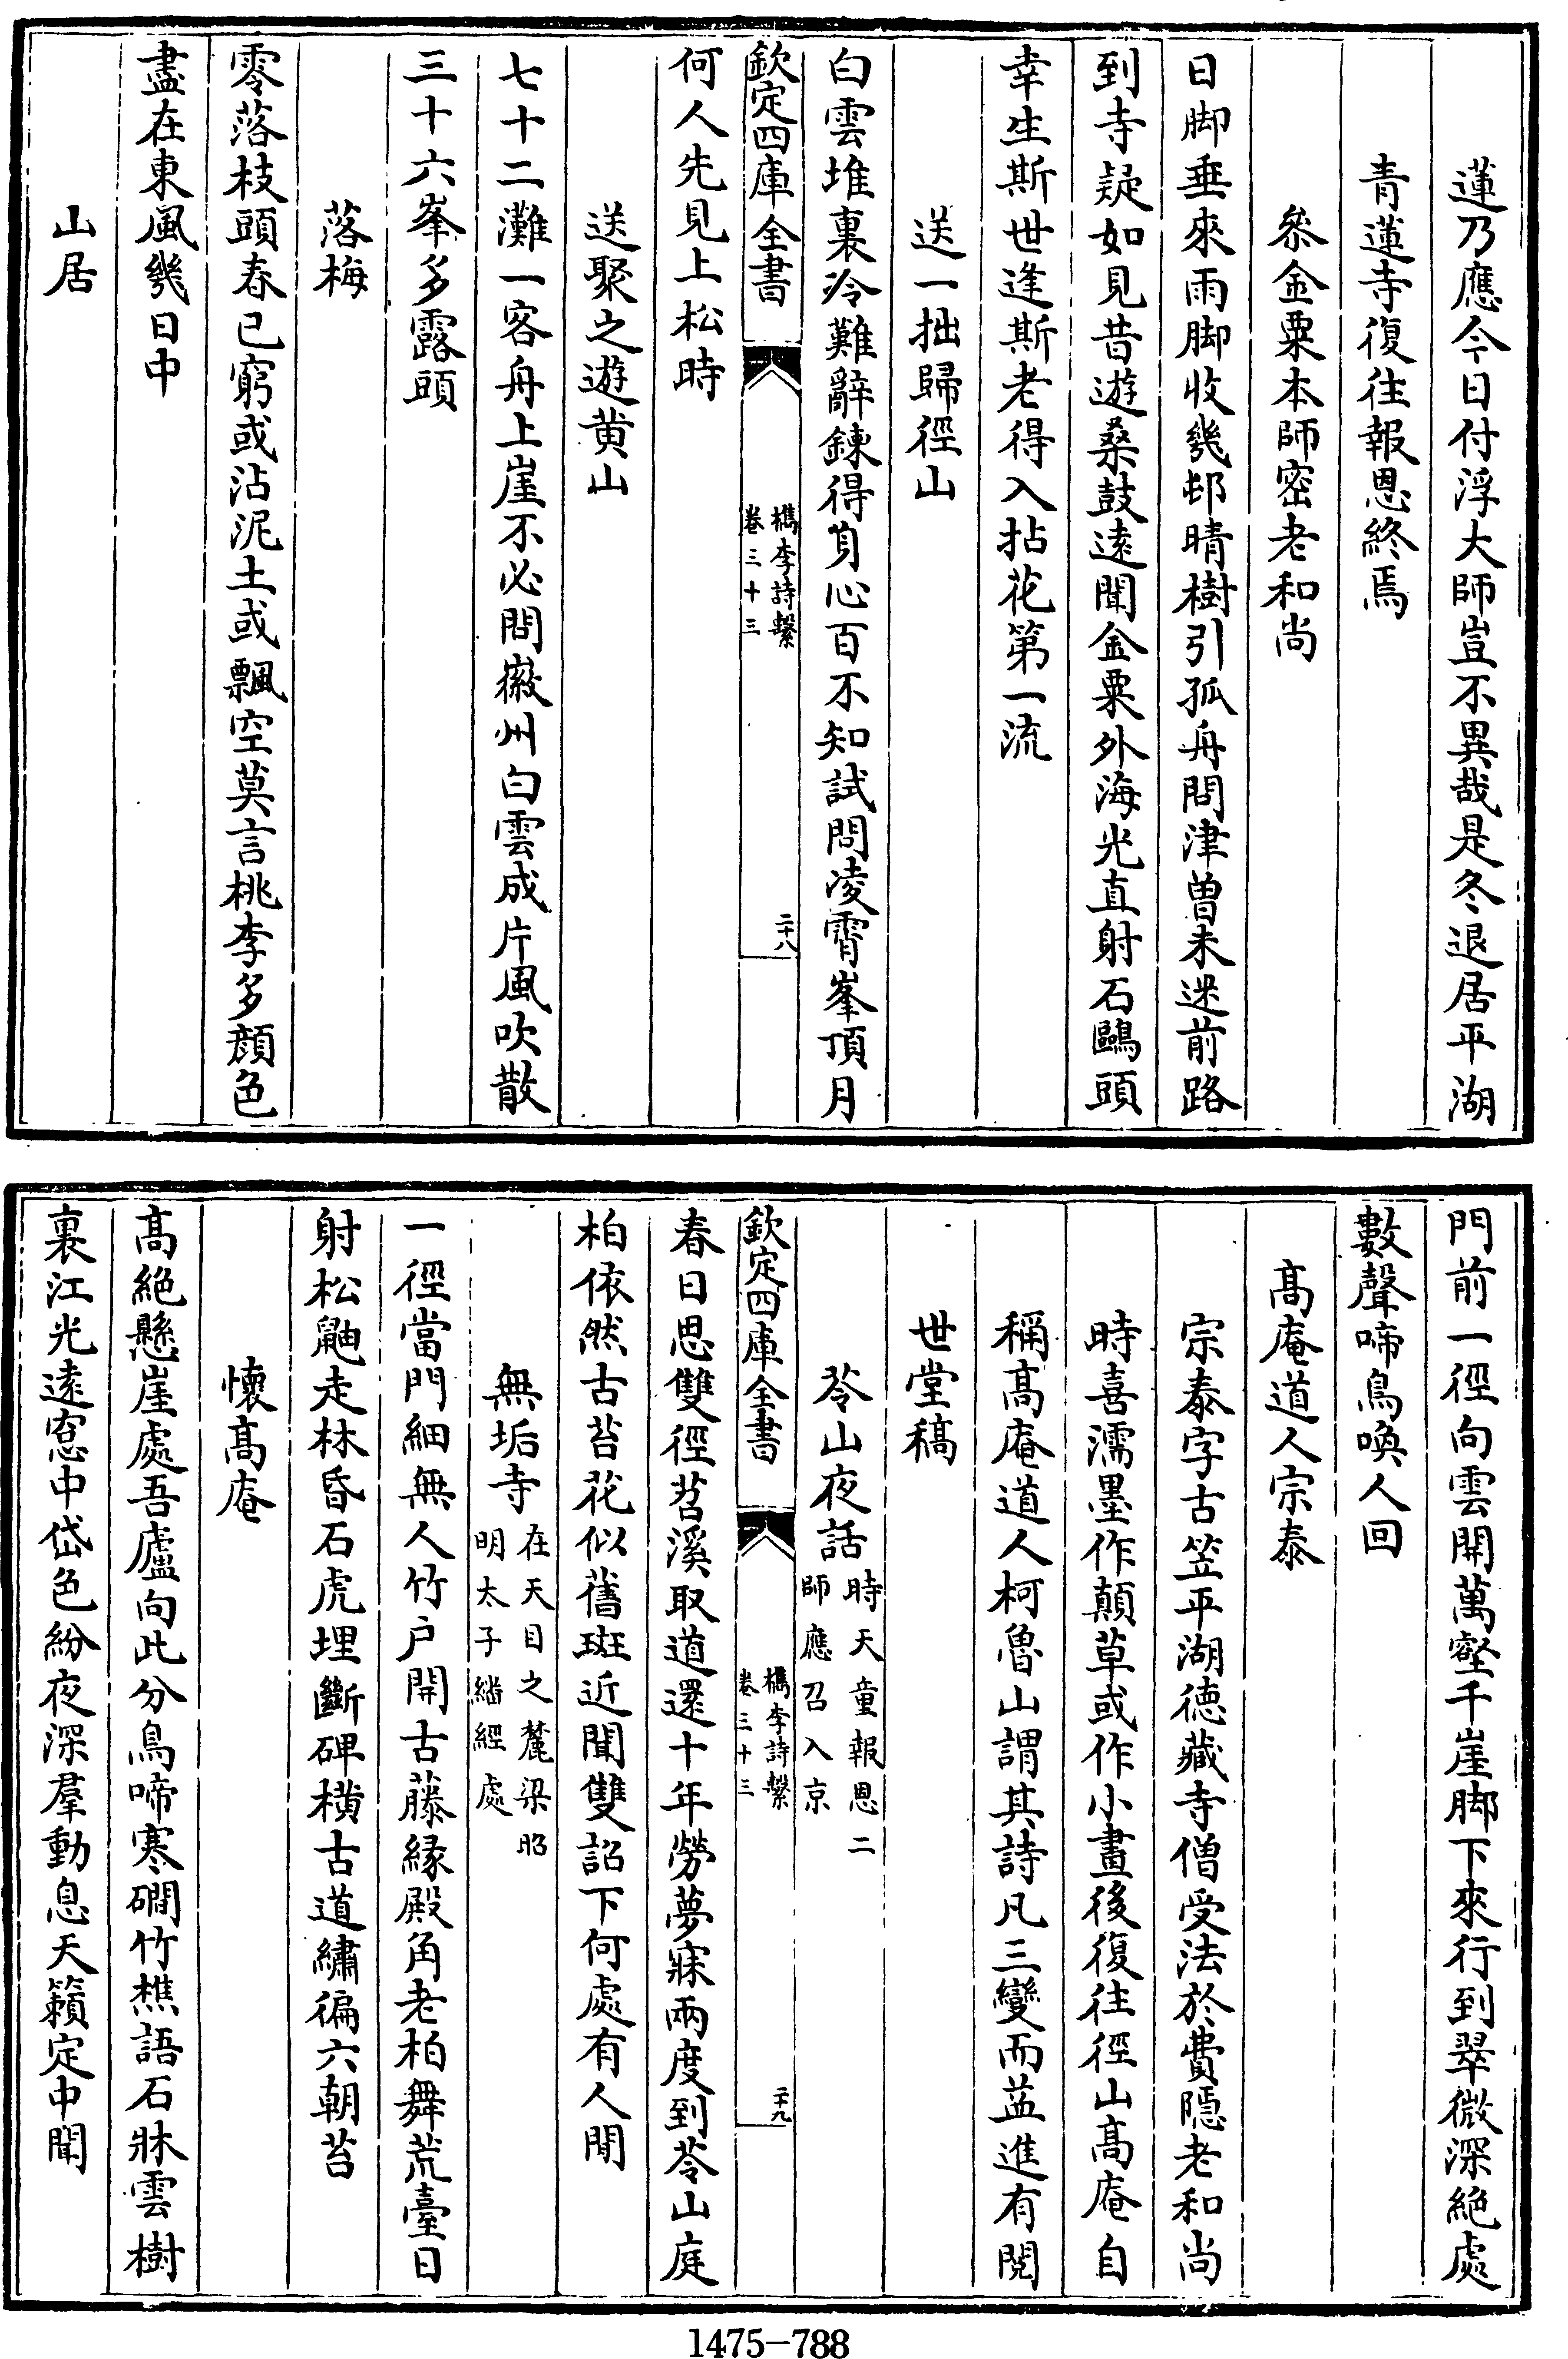 蓮乃應今日付浮大師豈不異哉是冬退居平湖
青蓮寺復往報恩終焉
叅金粟本師密老和尚
日脚垂來雨脚收幾邨晴樹引孤舟問津曽未迷前路
到寺疑如見昔遊桑鼓遠聞金粟外海光直射石鷗頭
幸生斯世逢斯老得入拈花第一流
送一拙歸徑山
白雲堆裏冷難辭鍊得身心百不知試問凌霄峯頂月
欽定四庫全書
檇李詩繫
卷三十三
二十八
何人先見上松時
送聚之遊黄山
七十二灘一客舟上崖不必問徽州白雲成片風吹散
三十六峯多露頭
落梅
零落枝頭春已窮或沾泥土或飄空莫言桃李多顔色
盡在東風幾日中
山居
門前一徑向雲開萬壑千崖脚下來行到翠微深絶處
數聲啼鳥喚人回
髙庵道人宗泰
宗泰字古笠平湖徳藏寺僧受法於費隱老和尚
時喜濡墨作顛草或作小畫後復往徑山髙庵自
稱髙庵道人柯魯山謂其詩凡三變而益進有閲
世堂稿
苓山夜話時天童報恩二
師應召入京
欽定四庫全書
檇李詩繫
卷三十三
二十九
春日思雙徑苕溪取道還十年勞夢寐兩度到苓山庭
柏依然古苔花似舊斑近聞雙詔下何處有人閒
無垢寺在天目之麓梁昭
明太子繙經處
一徑當門細無人竹户開古藤縁殿角老柏舞荒臺日
射松鼬走林昏石虎埋斷碑横古道繡徧六朝苔
懷髙庵
髙絶懸崖處吾廬向此分鳥啼寒磵竹樵語石牀雲樹
裏江光遠窓中岱色紛夜深羣動息天籟定中聞
1475-788